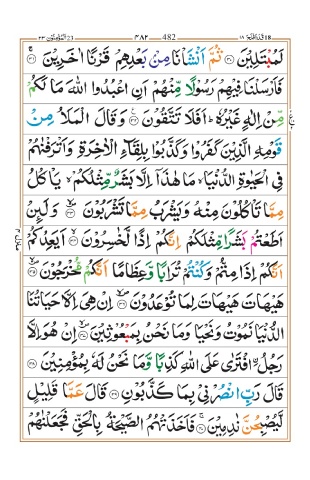 قد افلح ١٨ ۴۸۲ 482 المؤمنون ٢٣
لَمُبْتَلِيْنَ ﴿۳۰﴾ ثُمَّ اَنْشَاْنَا مِنْۢ بَعْدِهِمْ قَرْنًا اٰخَرِيْنَ ﴿۳۱﴾
فَاَرْسَلْنَا فِيْهِمْ رَسُوْلًا مِّنْهُمْ اَنِ اعْبُدُوا اللّٰهَ مَا لَكُمْ
مِّنْ اِلٰهٍ غَيْرُهٗ ؕ اَفَلَا تَتَّقُوْنَ ﴿۳۲﴾ وَقَالَ الْمَلَاُ مِنْ
قَوْمِهِ الَّذِيْنَ كَفَرُوْا وَكَذَّبُوْا بِلِقَآءِ الْاٰخِرَةِ وَاَتْرَفْنٰهُمْ
فِى الْحَيٰوةِ الدُّنْيَا ۙ مَا هٰذَاۤ اِلَّا بَشَرٌ مِّثْلُكُمْ ۙ يَاْكُلُ
مِمَّا تَاْكُلُوْنَ مِنْهُ وَيَشْرَبُ مِمَّا تَشْرَبُوْنَ ﴿۳۳﴾ وَلَئِنْ
اَطَعْتُمْ بَشَرًا مِّثْلَكُمْ اِنَّكُمْ اِذًا لَّخٰسِرُوْنَ ﴿۳۴﴾ اَيَعِدُكُمْ
اَنَّكُمْ اِذَا مِتُّمْ وَكُنْتُمْ تُرَابًا وَّعِظَامًا اَنَّكُمْ مُّخْرَجُوْنَ ﴿۳۵﴾
هَيْهَاتَ هَيْهَاتَ لِمَا تُوْعَدُوْنَ ﴿۳۶﴾ اِنْ هِىَ اِلَّا حَيَاتُنَا
الدُّنْيَا نَمُوْتُ وَنَحْيَا وَمَا نَحْنُ بِمَبْعُوْثِيْنَ ﴿۳۷﴾ اِنْ هُوَ اِلَّا
رَجُلُ ۨافْتَرٰى عَلَى اللّٰهِ كَذِبًا وَّمَا نَحْنُ لَهٗ بِمُؤْمِنِيْنَ ﴿۳۸﴾
قَالَ رَبِّ انْصُرْنِىْ بِمَا كَذَّبُوْنِ ﴿۳۹﴾ قَالَ عَمَّا قَلِيْلٍ
لَّيُصْبِحُنَّ نٰدِمِيْنَ ﴿۴۰﴾ فَاَخَذَتْهُمُ الصَّيْحَةُ بِالْحَقِّ فَجَعَلْنٰهُمْ